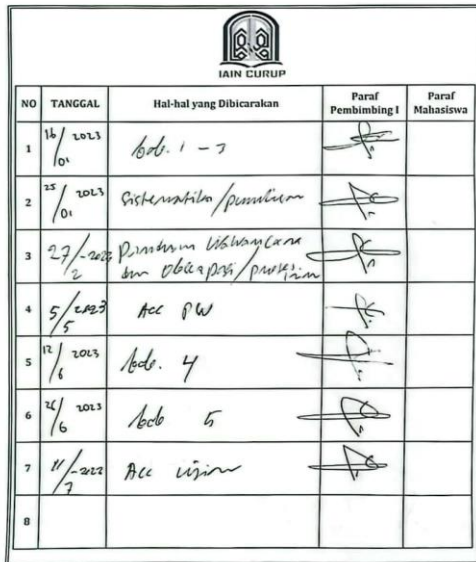 IAIN CURUP
NO TANGGAL Hal-hal yang Dibicarakan Paraf Pembimbing I Paraf Mahasiswa
1 16/01 2023 bab. 1 - 3
2 25/01 2023 Sistematika/penulisan
3 27/2 Panduan Wawancara
dan Observasi/
4 5/5 2023 Acc
5 12/6 2023 bab. 4
6 26/6 2023 bab 5
7 11/7 Acc ujian
8